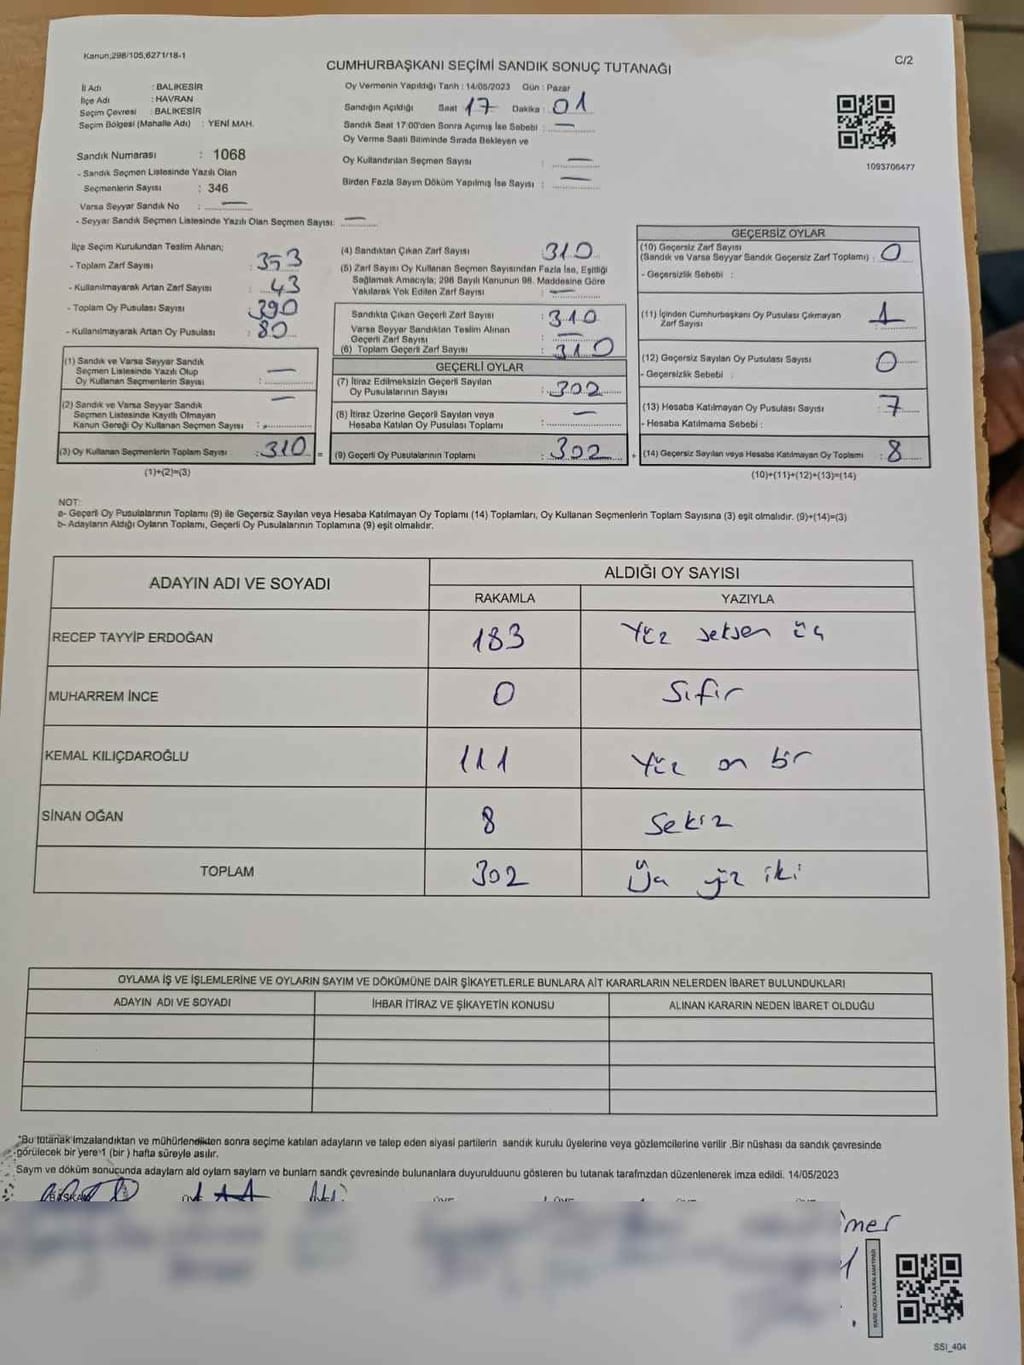 Kanun,298/105,6271/18-1
C/2
CUMHURBAŞKANI SEÇİMİ SANDIK SONUÇ TUTANAĞI
İl Adı : BALIKESİR
İlçe Adı : HAVRAN
Seçim Çevresi : BALIKESİR
Seçim Bölgesi (Mahalle Adı) : YENİ MAH.
Sandık Numarası : 1068
- Sandık Seçmen Listesinde Yazılı Olan
Seçmenlerin Sayısı : 346
Varsa Seyyar Sandık No : —
- Seyyar Sandık Seçmen Listesinde Yazılı Olan Seçmen Sayısı: —
Oy Vermenin Yapıldığı Tarih : 14/05/2023 Gün : Pazar
Sandığın Açıldığı Saat 17 Dakika : 01
Sandık Saat 17:00'den Sonra Açımış İse Sebebi : —
Oy Verme Saati Bitiminde Sırada Bekleyen ve
Oy Kullandırılan Seçmen Sayısı : —
Birden Fazla Sayım Döküm Yapılmış İse Sayısı : —
1093706477
İlçe Seçim Kurulundan Teslim Alınan;
- Toplam Zarf Sayısı : 353
- Kullanılmayarak Artan Zarf Sayısı : 43
- Toplam Oy Pusulası Sayısı : 390
- Kullanılmayarak Artan Oy Pusulası : 80
(1) Sandık ve Varsa Seyyar Sandık
Seçmen Listesinde Yazılı Olup
Oy Kullanan Seçmenlerin Sayısı : —
(2) Sandık ve Varsa Seyyar Sandık
Seçmen Listesinde Kayıtlı Olmayan
Kanun Gereği Oy Kullanan Seçmen Sayısı : —
(3) Oy Kullanan Seçmenlerin Toplam Sayısı : 310 =
(1)+(2)=(3)
(4) Sandıktan Çıkan Zarf Sayısı : 310
(5) Zarf Sayısı Oy Kullanan Seçmen Sayısından Fazla İse, Eşitliği
Sağlamak Amacıyla, 298 Sayılı Kanunun 98. Maddesine Göre
Yakılarak Yok Edilen Zarf Sayısı : —
Sandıkta Çıkan Geçerli Zarf Sayısı : 310
Varsa Seyyar Sandıktan Teslim Alınan
Geçerli Zarf Sayısı : —
(6) Toplam Geçerli Zarf Sayısı : 310
GEÇERLİ OYLAR
(7) İtiraz Edilmeksizin Geçerli Sayılan
Oy Pusulalarının Sayısı : 302
(8) İtiraz Üzerine Geçerli Sayılan veya
Hesaba Katılan Oy Pusulası Toplamı : —
(9) Geçerli Oy Pusulalarının Toplamı : 302 +
GEÇERSİZ OYLAR
(10) Geçersiz Zarf Sayısı
(Sandık ve Varsa Seyyar Sandık Geçersiz Zarf Toplamı) : 0
- Geçersizlik Sebebi :
(11) İçinden Cumhurbaşkanı Oy Pusulası Çıkmayan
Zarf Sayısı : 1
(12) Geçersiz Sayılan Oy Pusulası Sayısı : 0
- Geçersizlik Sebebi :
(13) Hesaba Katılmayan Oy Pusulası Sayısı : 7
- Hesaba Katılmama Sebebi :
(14) Geçersiz Sayılan veya Hesaba Katılmayan Oy Toplamı : 8
(10)+(11)+(12)+(13)=(14)
NOT:
a- Geçerli Oy Pusulalarının Toplamı (9) ile Geçersiz Sayılan veya Hesaba Katılmayan Oy Toplamı (14) Toplamları, Oy Kullanan Seçmenlerin Toplam Sayısına (3) eşit olmalıdır. (9)+(14)=(3)
b- Adayların Aldığı Oyların Toplamı, Geçerli Oy Pusulalarının Toplamına (9) eşit olmalıdır.
ADAYIN ADI VE SOYADI
ALDIĞI OY SAYISI
RAKAMLA YAZIYLA
RECEP TAYYİP ERDOĞAN 183 Yüz seksen üç
MUHARREM İNCE 0 Sıfır
KEMAL KILIÇDAROĞLU 111 Yüz on bir
SİNAN OĞAN 8 Sekiz
TOPLAM 302 Üç yüz iki
OYLAMA İŞ VE İŞLEMLERİNE VE OYLARIN SAYIM VE DÖKÜMÜNE DAİR ŞİKAYETLERLE BUNLARA AİT KARARLARIN NELERDEN İBARET BULUNDUKLARI
ADAYIN ADI VE SOYADI İHBAR İTİRAZ VE ŞİKAYETİN KONUSU ALINAN KARARIN NEDEN İBARET OLDUĞU
*Bu tutanak imzalandıktan ve mühürlendikten sonra seçime katılan adayların ve talep eden siyasi partilerin sandık kurulu üyelerine veya gözlemcilerine verilir .Bir nüshası da sandık çevresinde
görülecek bir yere 1 (bir ) hafta süreyle asılır.
Sayım ve döküm sonucunda adayların ald oyların sayları ve bunların sandk çevresinde bulunanlara duyurulduunu gösteren bu tutanak tarafmzdan düzenlenerek imza edildi. 14/05/2023
BAŞKAN
SSİ_404